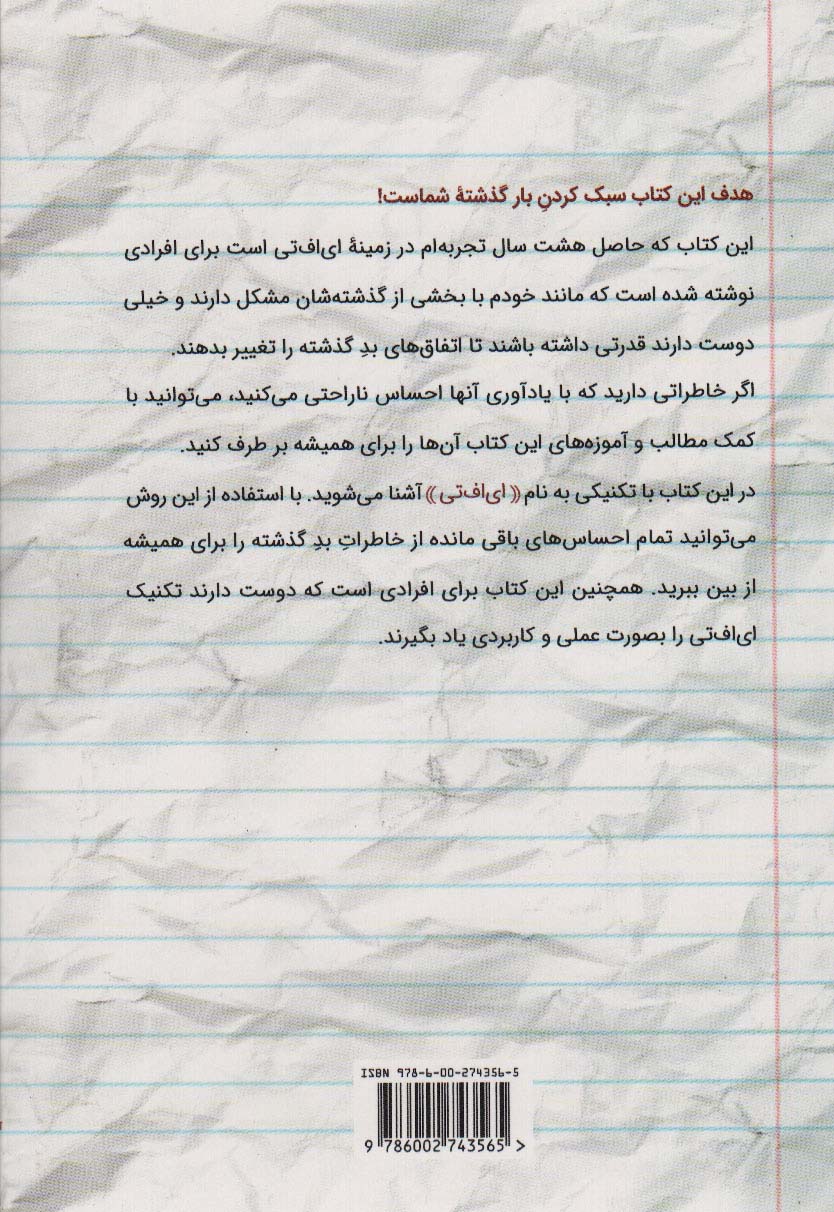 هدف این کتاب سبک کردنِ بار گذشتهٔ شماست!
این کتاب که حاصل هشت سال تجربه‌ام در زمینهٔ ای‌اف‌تی است برای افرادی
نوشته شده است که مانند خودم با بخشی از گذشته‌شان مشکل دارند و خیلی
دوست دارند قدرتی داشته باشند تا اتفاق‌های بدِ گذشته را تغییر بدهند.
اگر خاطراتی دارید که با یادآوری آنها احساس ناراحتی می‌کنید، می‌توانید با
کمک مطالب و آموزه‌های این کتاب آن‌ها را برای همیشه بر طرف کنید.
در این کتاب با تکنیکی به نام «ای‌اف‌تی» آشنا می‌شوید. با استفاده از این روش
می‌توانید تمام احساس‌های باقی مانده از خاطراتِ بدِ گذشته را برای همیشه
از بین ببرید. همچنین این کتاب برای افرادی است که دوست دارند تکنیک
ای‌اف‌تی را بصورت عملی و کاربردی یاد بگیرند.
ISBN 978-6-00-274356-5
9 786002 743565 >